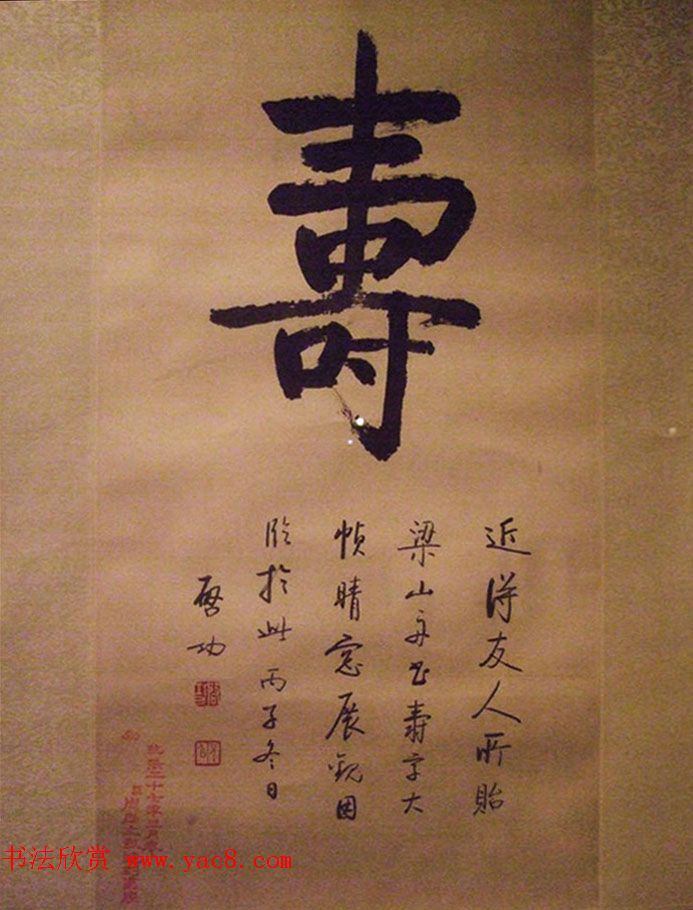 壽
近得友人所貽
梁山舟書壽字大
幀晴窓展觀因
臨於此丙子冬日
啓功
书法欣赏 www.yac8.com